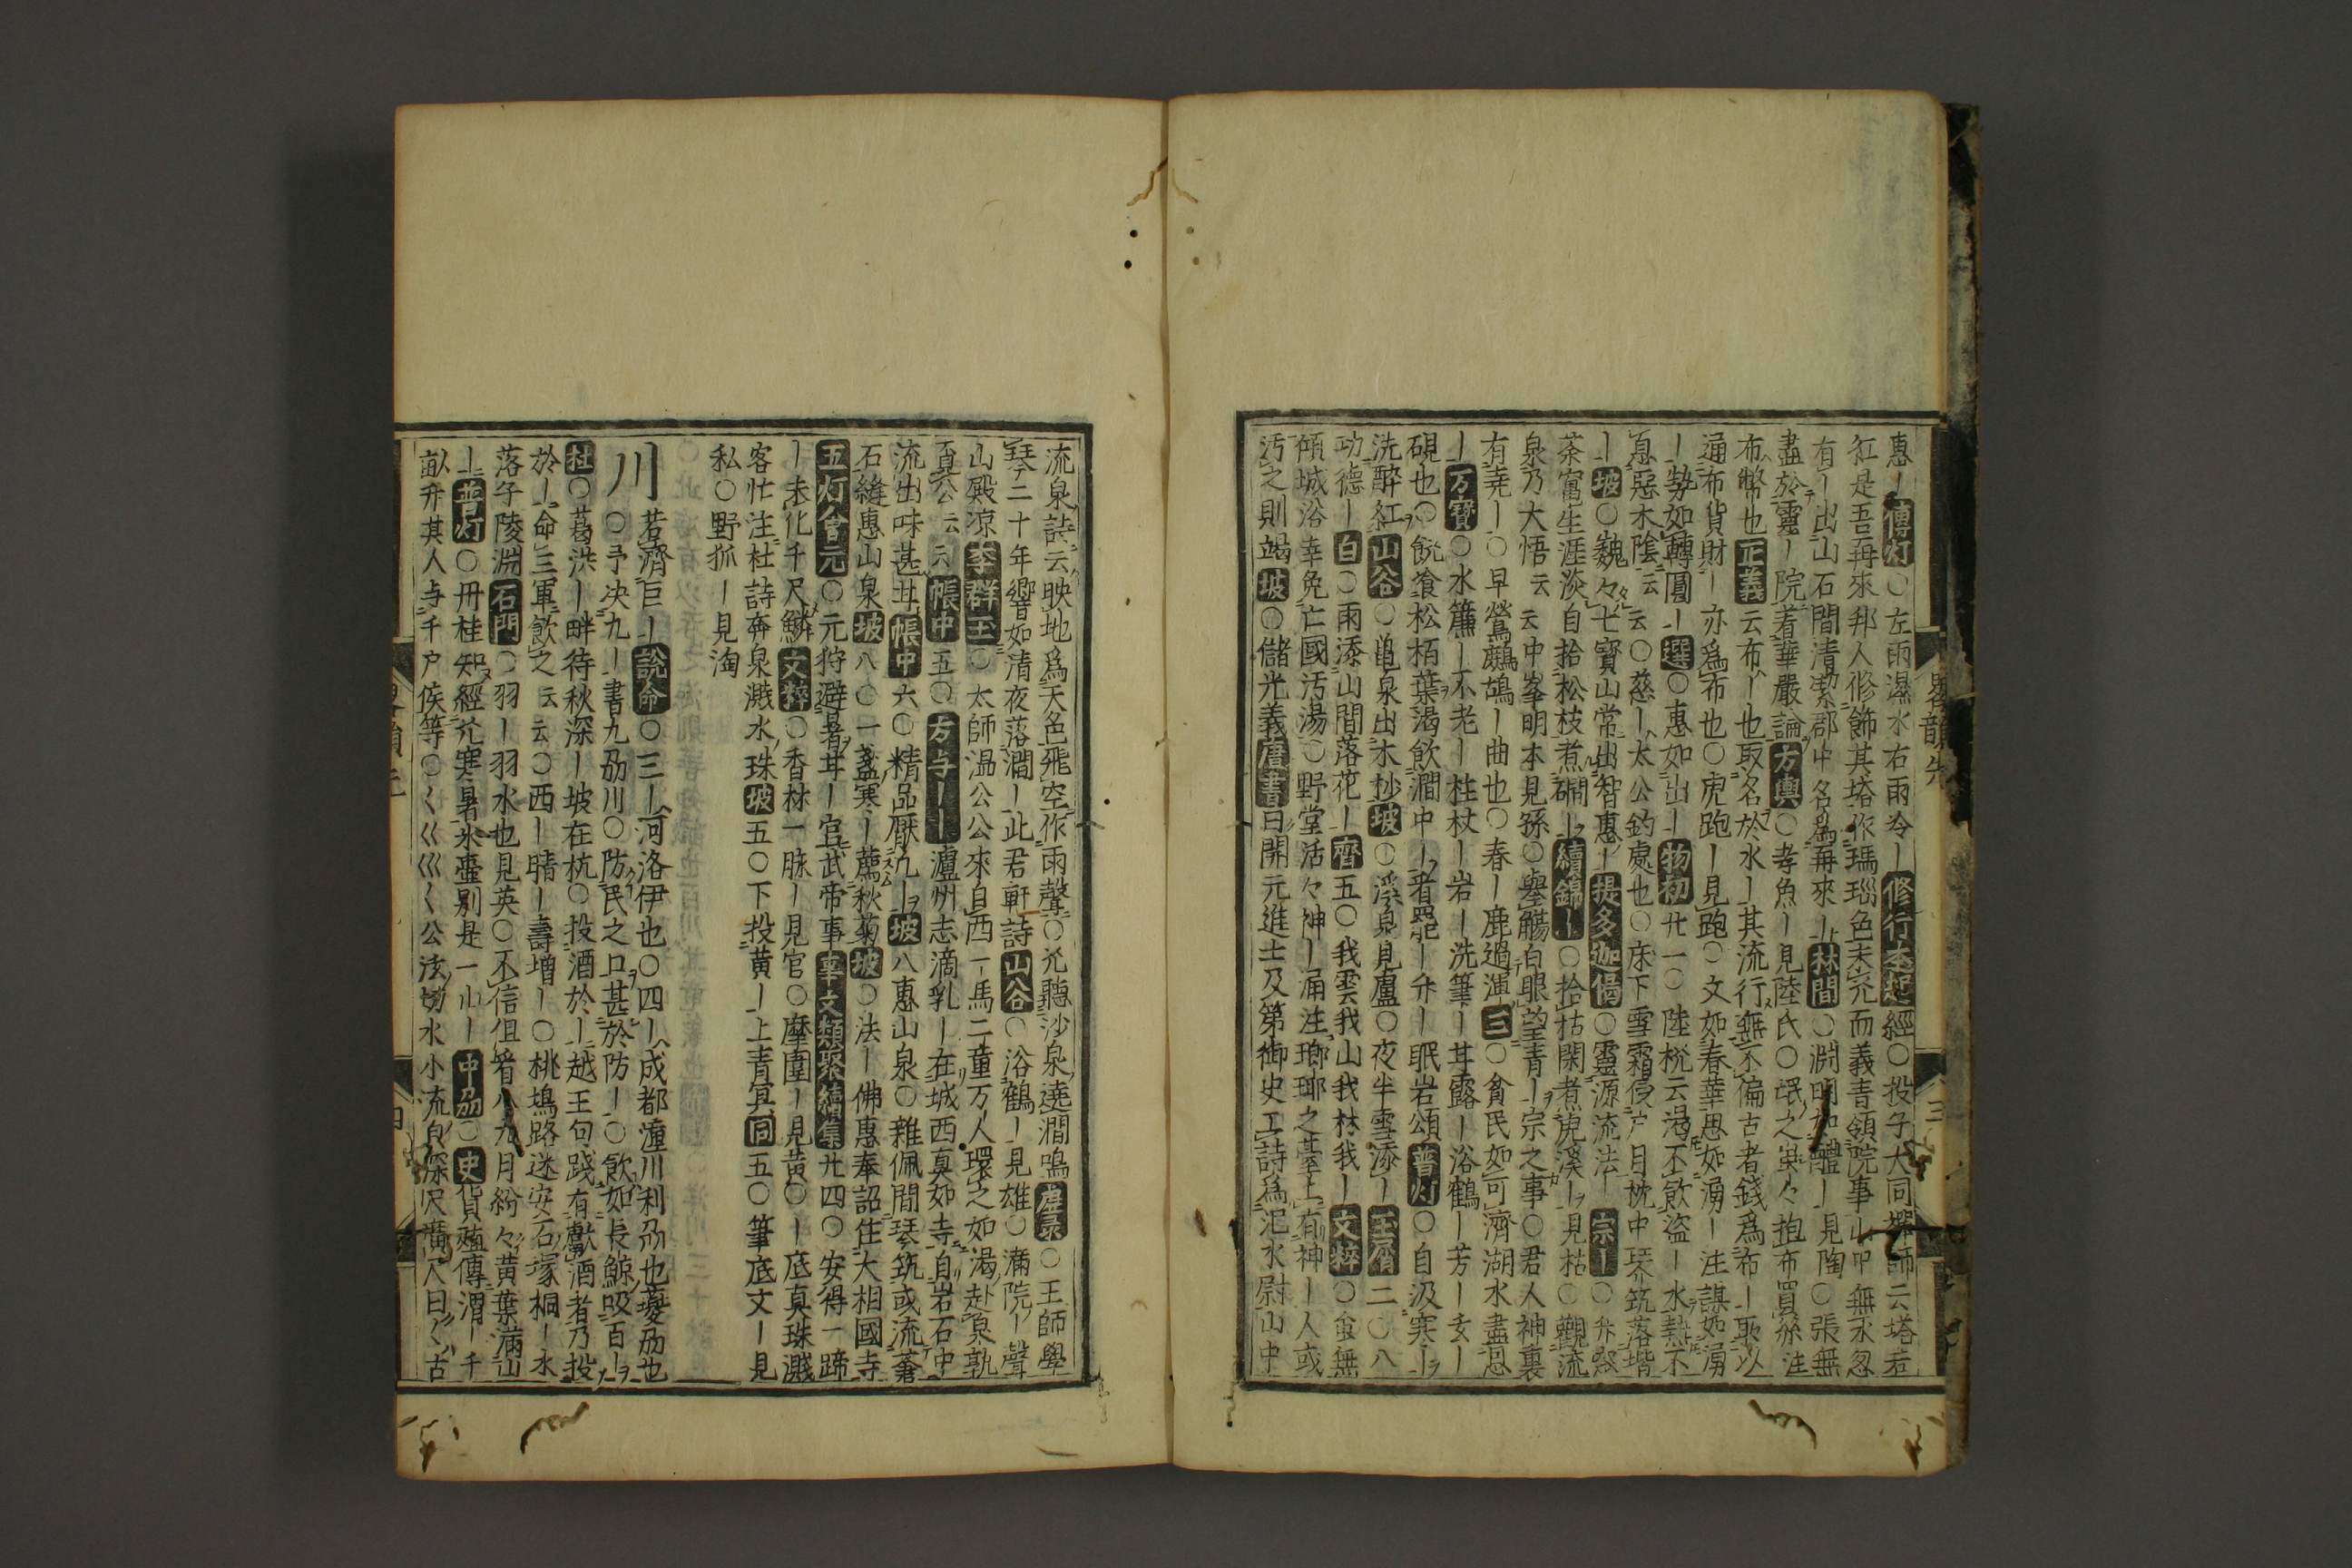 惠｜傳灯〇左雨瀑水右雨冷｜修行本起經〇投子大同禪師云塔若
紅是吾再來邦人修飾其塔作瑪瑙色未完而義青領院事山中無水忽
有｜出山石間清潔郡中名爲再來｜林間〇淵明如醴｜見陶〇張無
盡於靈｜院著華嚴論方輿〇孝魚｜見陸氏〇氓之蚩々抱布貿絲注
布幣也正義云布｜也取名於水｜其流行無不偏古者錢爲布｜取以
通布貨財｜亦爲布也〇虎跑｜見跑〇文如春華思如湧｜注謀如湧
｜勢如轉圓｜選〇惠如出｜物初廿一〇陸機云渴不飲盜｜水熱不
息惡木陰云云〇慈｜太公釣處也〇床下雪霜侵户月枕中琴筑落堦
｜坡〇巍々七寶山常出智惠｜提多迦偈〇靈源流法｜宗｜〇
茶富生涯淡自拾松枝煮磵｜續錦｜〇拾枯閑煮虎溪｜見枯〇觀流
泉乃大悟云云中峯明本見孫〇擧觴白眼望青｜宗之事〇君人神裏
有尭｜〇早鶯鷓鴣｜曲也〇春｜鹿過渾三〇貪民如可濟湖水盡思
｜万寳〇水簾｜不老｜柱杖｜岩｜洗筆｜甘露｜浴鶴｜芳｜玄｜
硯也〇飢飡松栢葉渴飲澗中｜看｜岩頌普灯〇自汲寒｜
洗醉紅山谷〇亀泉出木抄坡〇浮泉見盧〇夜半雪添｜玉屑二〇八
功德｜白〇雨添山間落花｜齊五〇我雲我山我林我｜文粹〇無
傾城浴幸免亡國汚湯〇野堂活々神｜涌注瑯琊之臺上有神｜人或
汚之則竭坡〇儲光義唐書曰開元進士及第御史工詩爲汜水尉山中
流泉詩云映地爲天色飛空作雨聲〇況聽沙泉遶澗鳴〇王師學
琴二十年響如清夜落澗｜此君軒詩山谷〇浴鶴｜見雄〇滿院｜聲
山殿凉李群玉〇太師温公公來自西｜馬二童万人環之如渴赴泉孰
真公云云帳中五〇方与｜｜瀘州志滴乳｜在城西真如寺自岩石中
流出味甚甘帳中六〇精品厭凢｜坡八惠山泉〇雜佩間琴筑或流
石縫惠山泉坡八〇一盞寒｜薦秋菊坡〇法｜佛惠奉詔住大相國寺
五灯會元〇元狩避暑甘｜宫武帝事事文類聚續集廿四〇安得一蹄
｜未化千尺鱗文粹〇香林一脉｜見官〇摩圍｜見黄〇｜底真珠濺
客忙注杜詩奔泉濺水珠坡五〇下投黄｜上青冥同五〇筆底文｜見
私〇野狐｜見淘
川　若濟巨｜說命〇三｜河洛伊也〇四｜成都潼川利刕也夔刕也
〇予决九｜書九刕川〇防民之口甚於防｜〇飲如長鯨吸百｜
杜〇葛洪｜畔待秋深｜坡在杭〇投酒於｜越王句踐有獻酒者乃投
於｜命三軍飲之云云〇西｜晴｜壽增｜〇桃塢路迷安石塚桐｜水
落子陵淵石門〇羽｜羽水也見英〇不信但看八九月紛々黄葉滿山
｜普灯〇丹桂知經寒暑氷壷别是一｜中刕〇史貨殖傳渭｜千
畝竹其人与千户侯等〇く巜巛｜く公泫切水小流自深尺廣尺曰く古